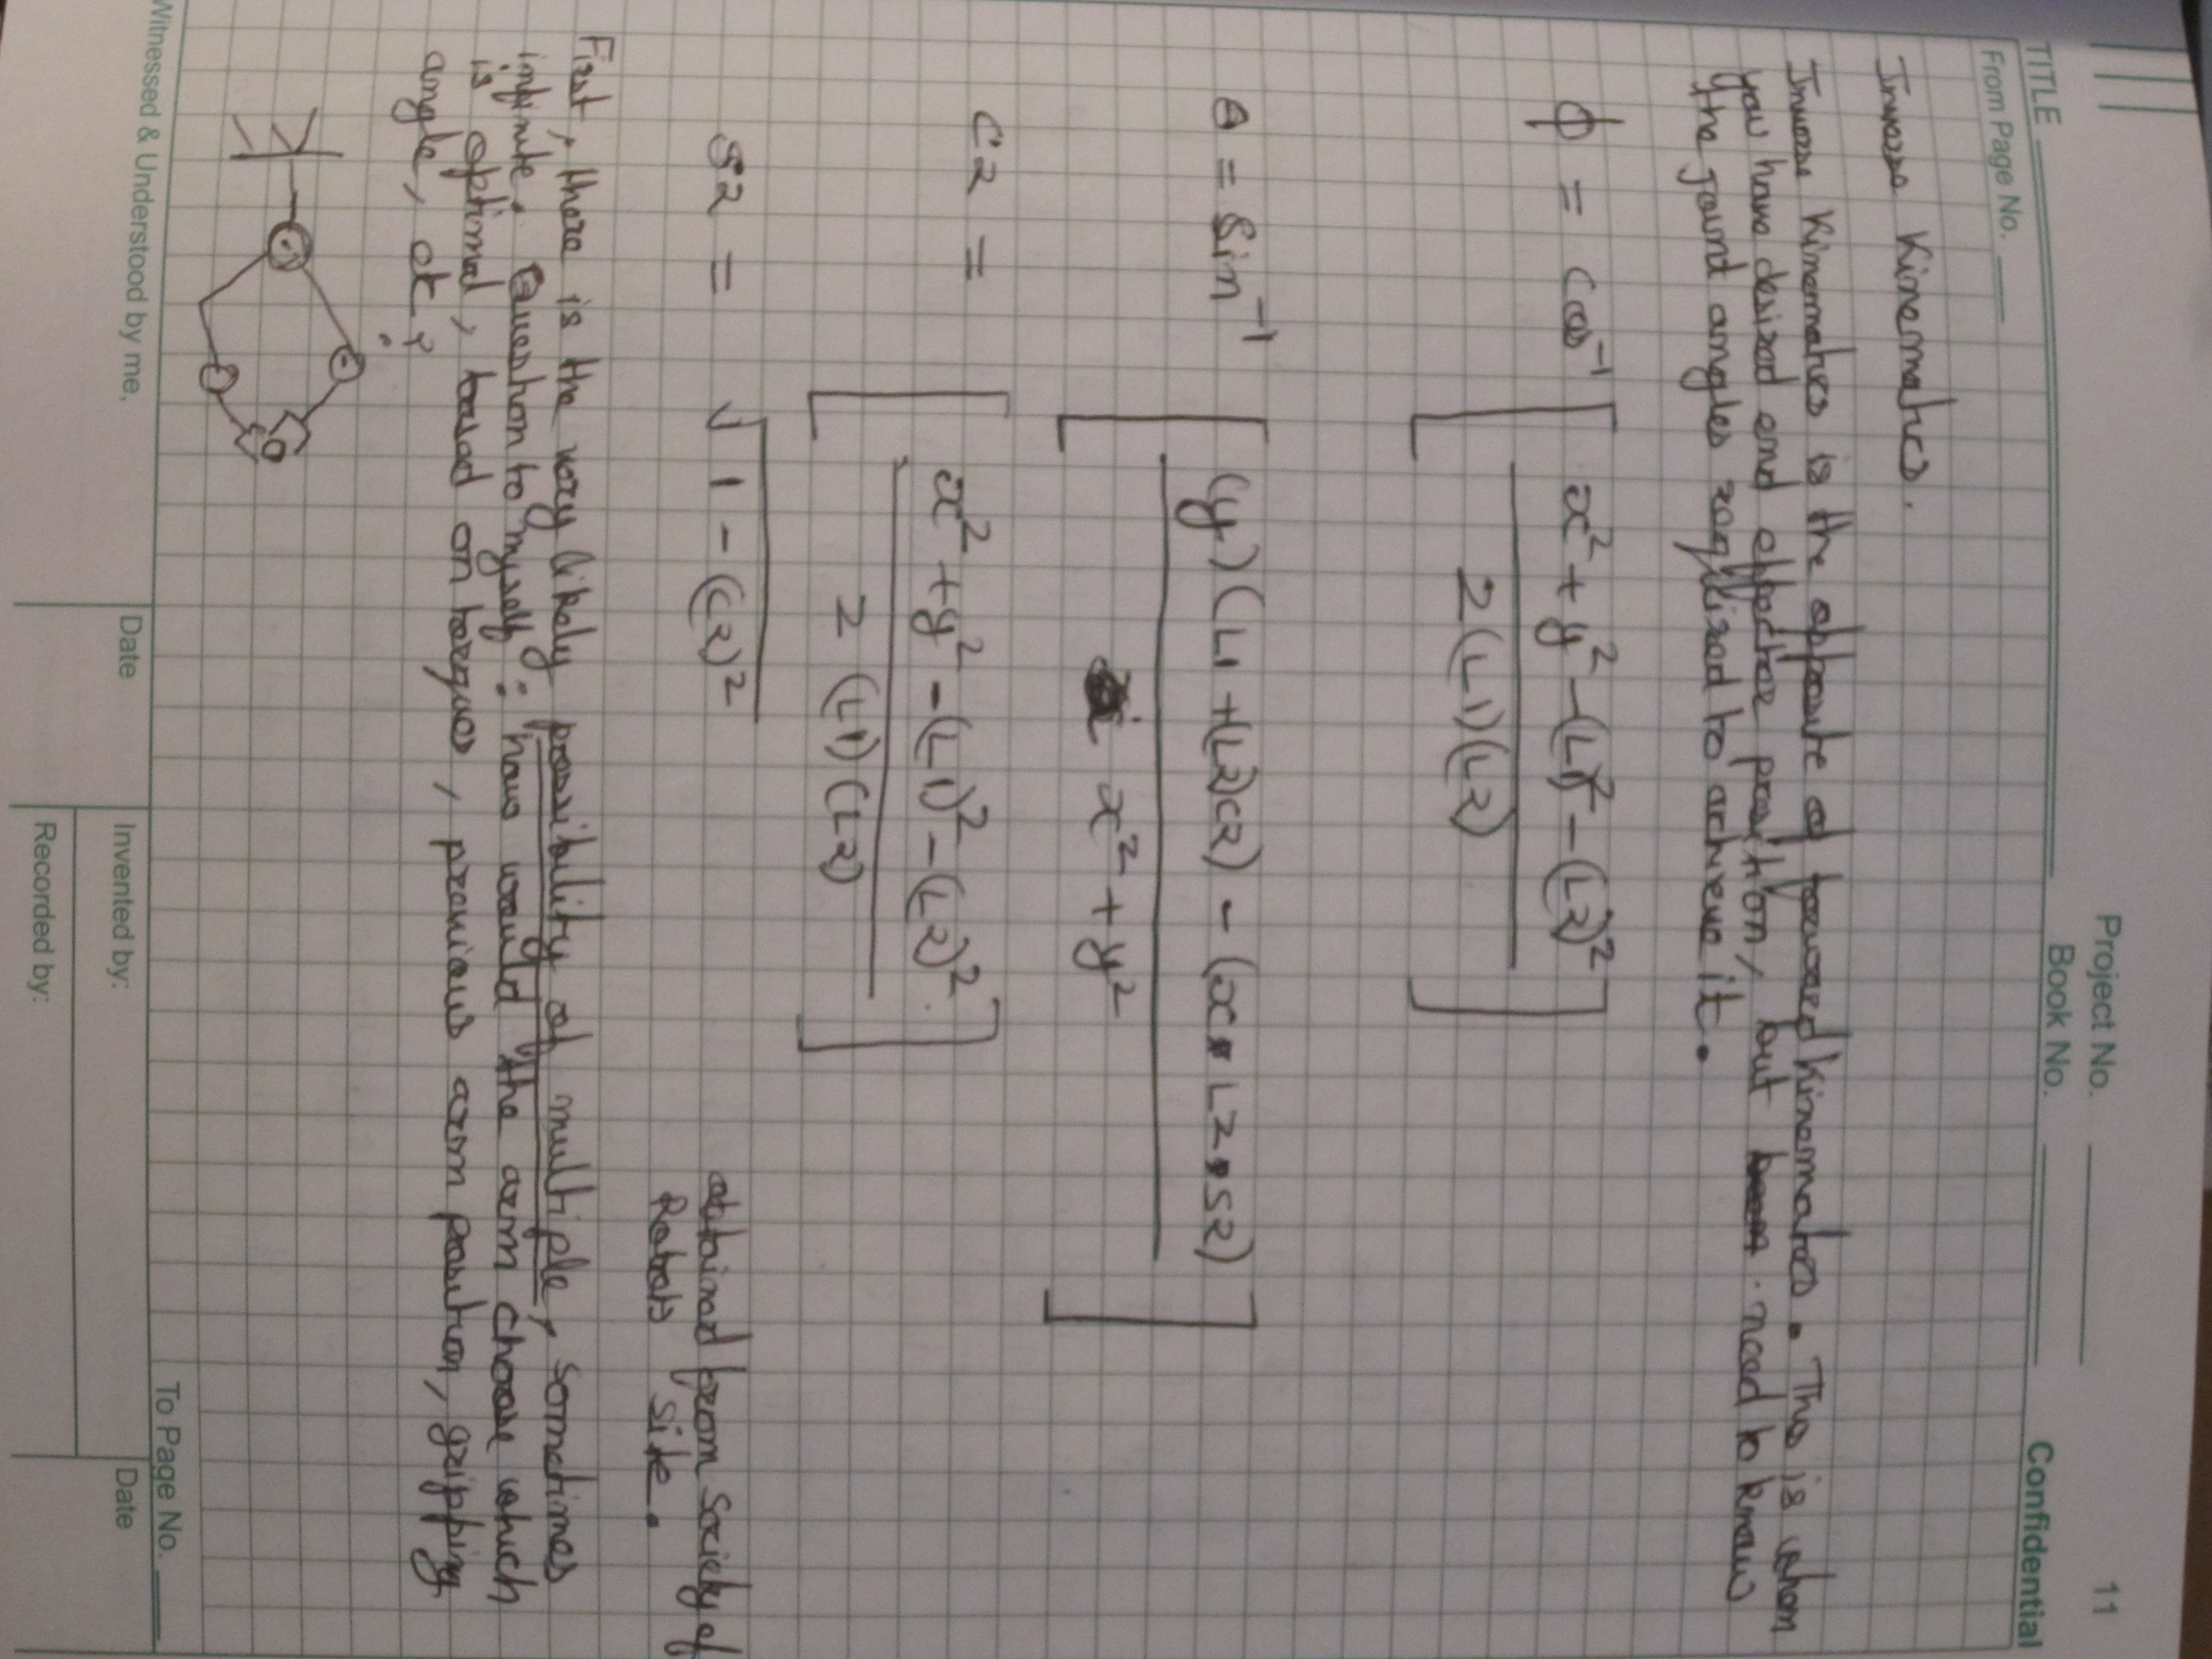 11
Project No.
TITLE Book No. Confidential
From Page No.
Inverse Kinematics.
Inverse Kinematics is the opposite of forward Kinematics. This is when
you have desired end effector position, but need to know
the joint angles required to achieve it.
ϕ = cos⁻¹ [ x² + y² - (L1)² - (L2)² / 2 (L1)(L2) ]
θ = sin⁻¹ [ (y)(L1+(L2)c2) - (x*L2*s2) / x² + y² ]
c2 = [ x² + y² - (L1)² - (L2)² / 2 (L1)(L2) ]
s2 = √1 - (c2)²
obtained from Society of
Robots site.
First, there is the very likely possibility of multiple, sometimes
infinite. Question to myself: how would the arm choose which
is optimal, based on torques, previous arm position, gripping
angle, etc?
To Page No.
Witnessed & Understood by me, Date Invented by: Date
Recorded by: